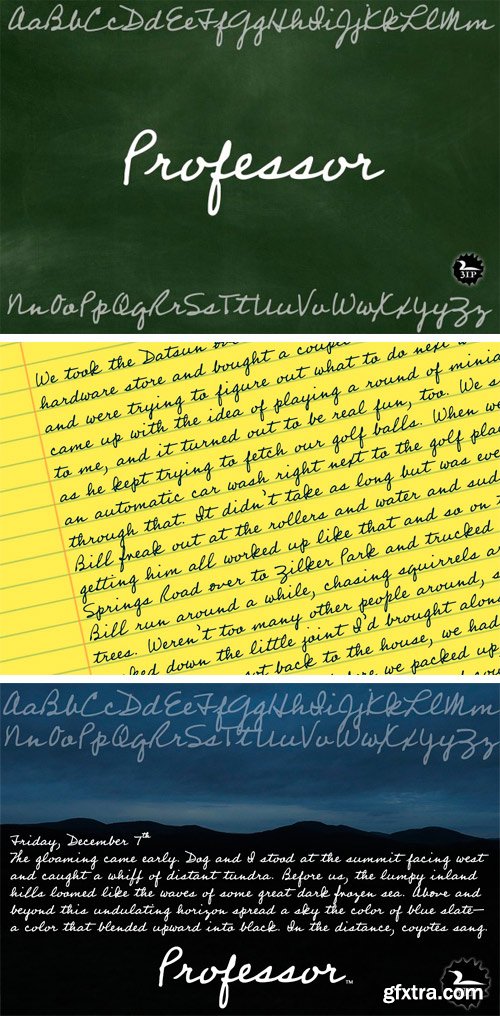 AaBbCcDdEeFfGgHhIiJjKkLlMm
Professor
3IP
NnOoPpQqRrSsTtUuVvWwXxYyZz
We took the Datsun
hardware store and bought a
and were trying to figure out what to do next
came up with the idea of playing a round of
to me, and it turned out to be real fun, too. We
as he kept trying to fetch our golf balls. When
an automatic car wash right next to the golf
through that. It didn't take as long but was
Bill freak out at the rollers and water and
getting him all worked up like that and so on
Springs Road over to Zilker Park and trucked
Bill run around a while, chasing squirrels
trees. Weren't too many other people around,
down the little joint I'd brought
back to the house, we had
we packed up,
AaBbCcDdEeFfGgHhIiJjKkLlMm
NnOoPpQqRrSsTtUuVvWwXxYyZz
Friday, December 7th
The gloaming came early. Dog and I stood at the summit facing west
and caught a whiff of distant tundra. Before us, the lumpy inland
hills loomed like the waves of some great dark frozen sea. Above and
beyond this undulating horizon spread a sky the color of blue slate—
a color that blended upward into black. In the distance, coyotes sang.
Professor™
gfxtra.com